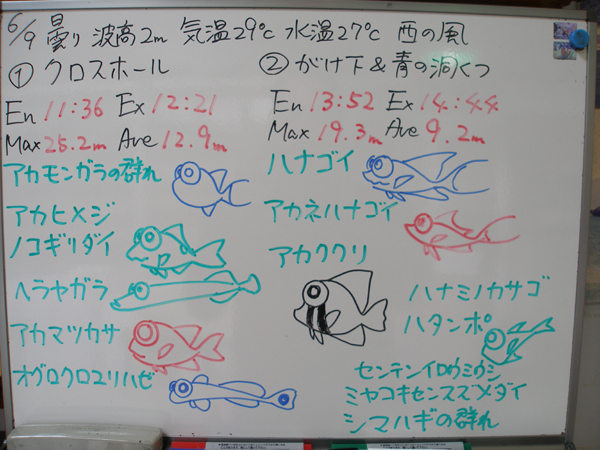 6/9 曇り 波高2m 気温29℃ 水温27℃ 西の風
① クロスホール
En 11:36 Ex 12:21
Max 25.2m Ave 12.9m
アカモンガラの群れ
アカヒメジ
ノコギリダイ
ヘラヤガラ
アカマツカサ
オグロクロユリハゼ
② がけ下&青の洞くつ
En 13:52 Ex 14:44
Max 19.3m Ave 9.2m
ハナゴイ
アカネハナゴイ
アカククリ
ハナミノカサゴ
ハタンポ
センテンイロウミウシ
ミヤコキセンスズメダイ
シマハギの群れ